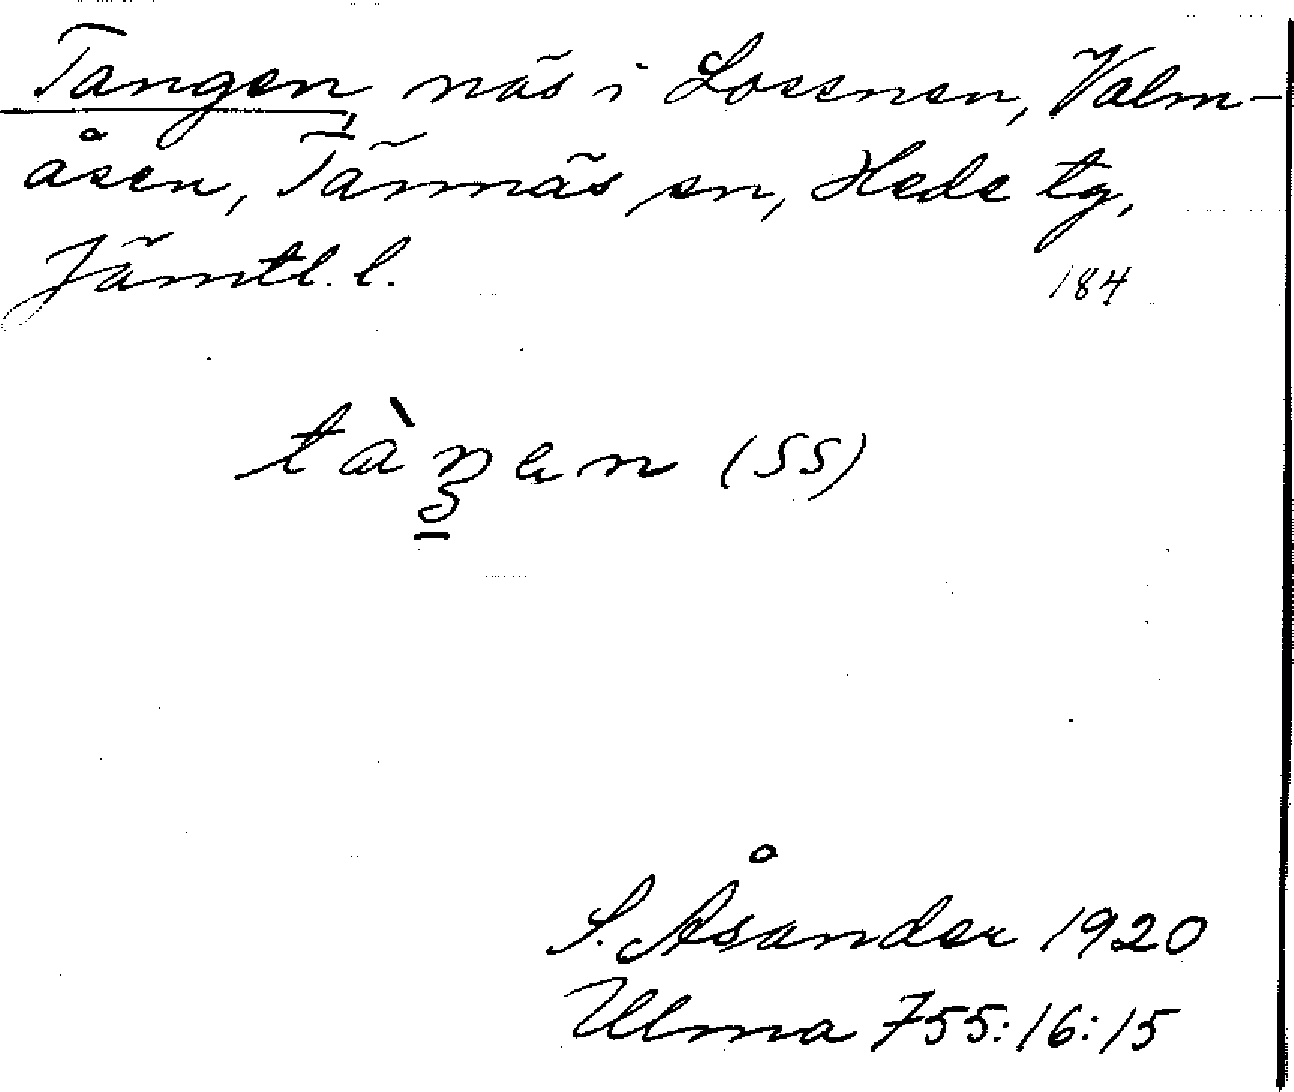 Tangen näs i Lossnen, Valm-
åsen, Tännäs sn, Hede tg,
Jämtl. l.
184
(SS)
S. Åsander 1920
Ulma 755:16:15